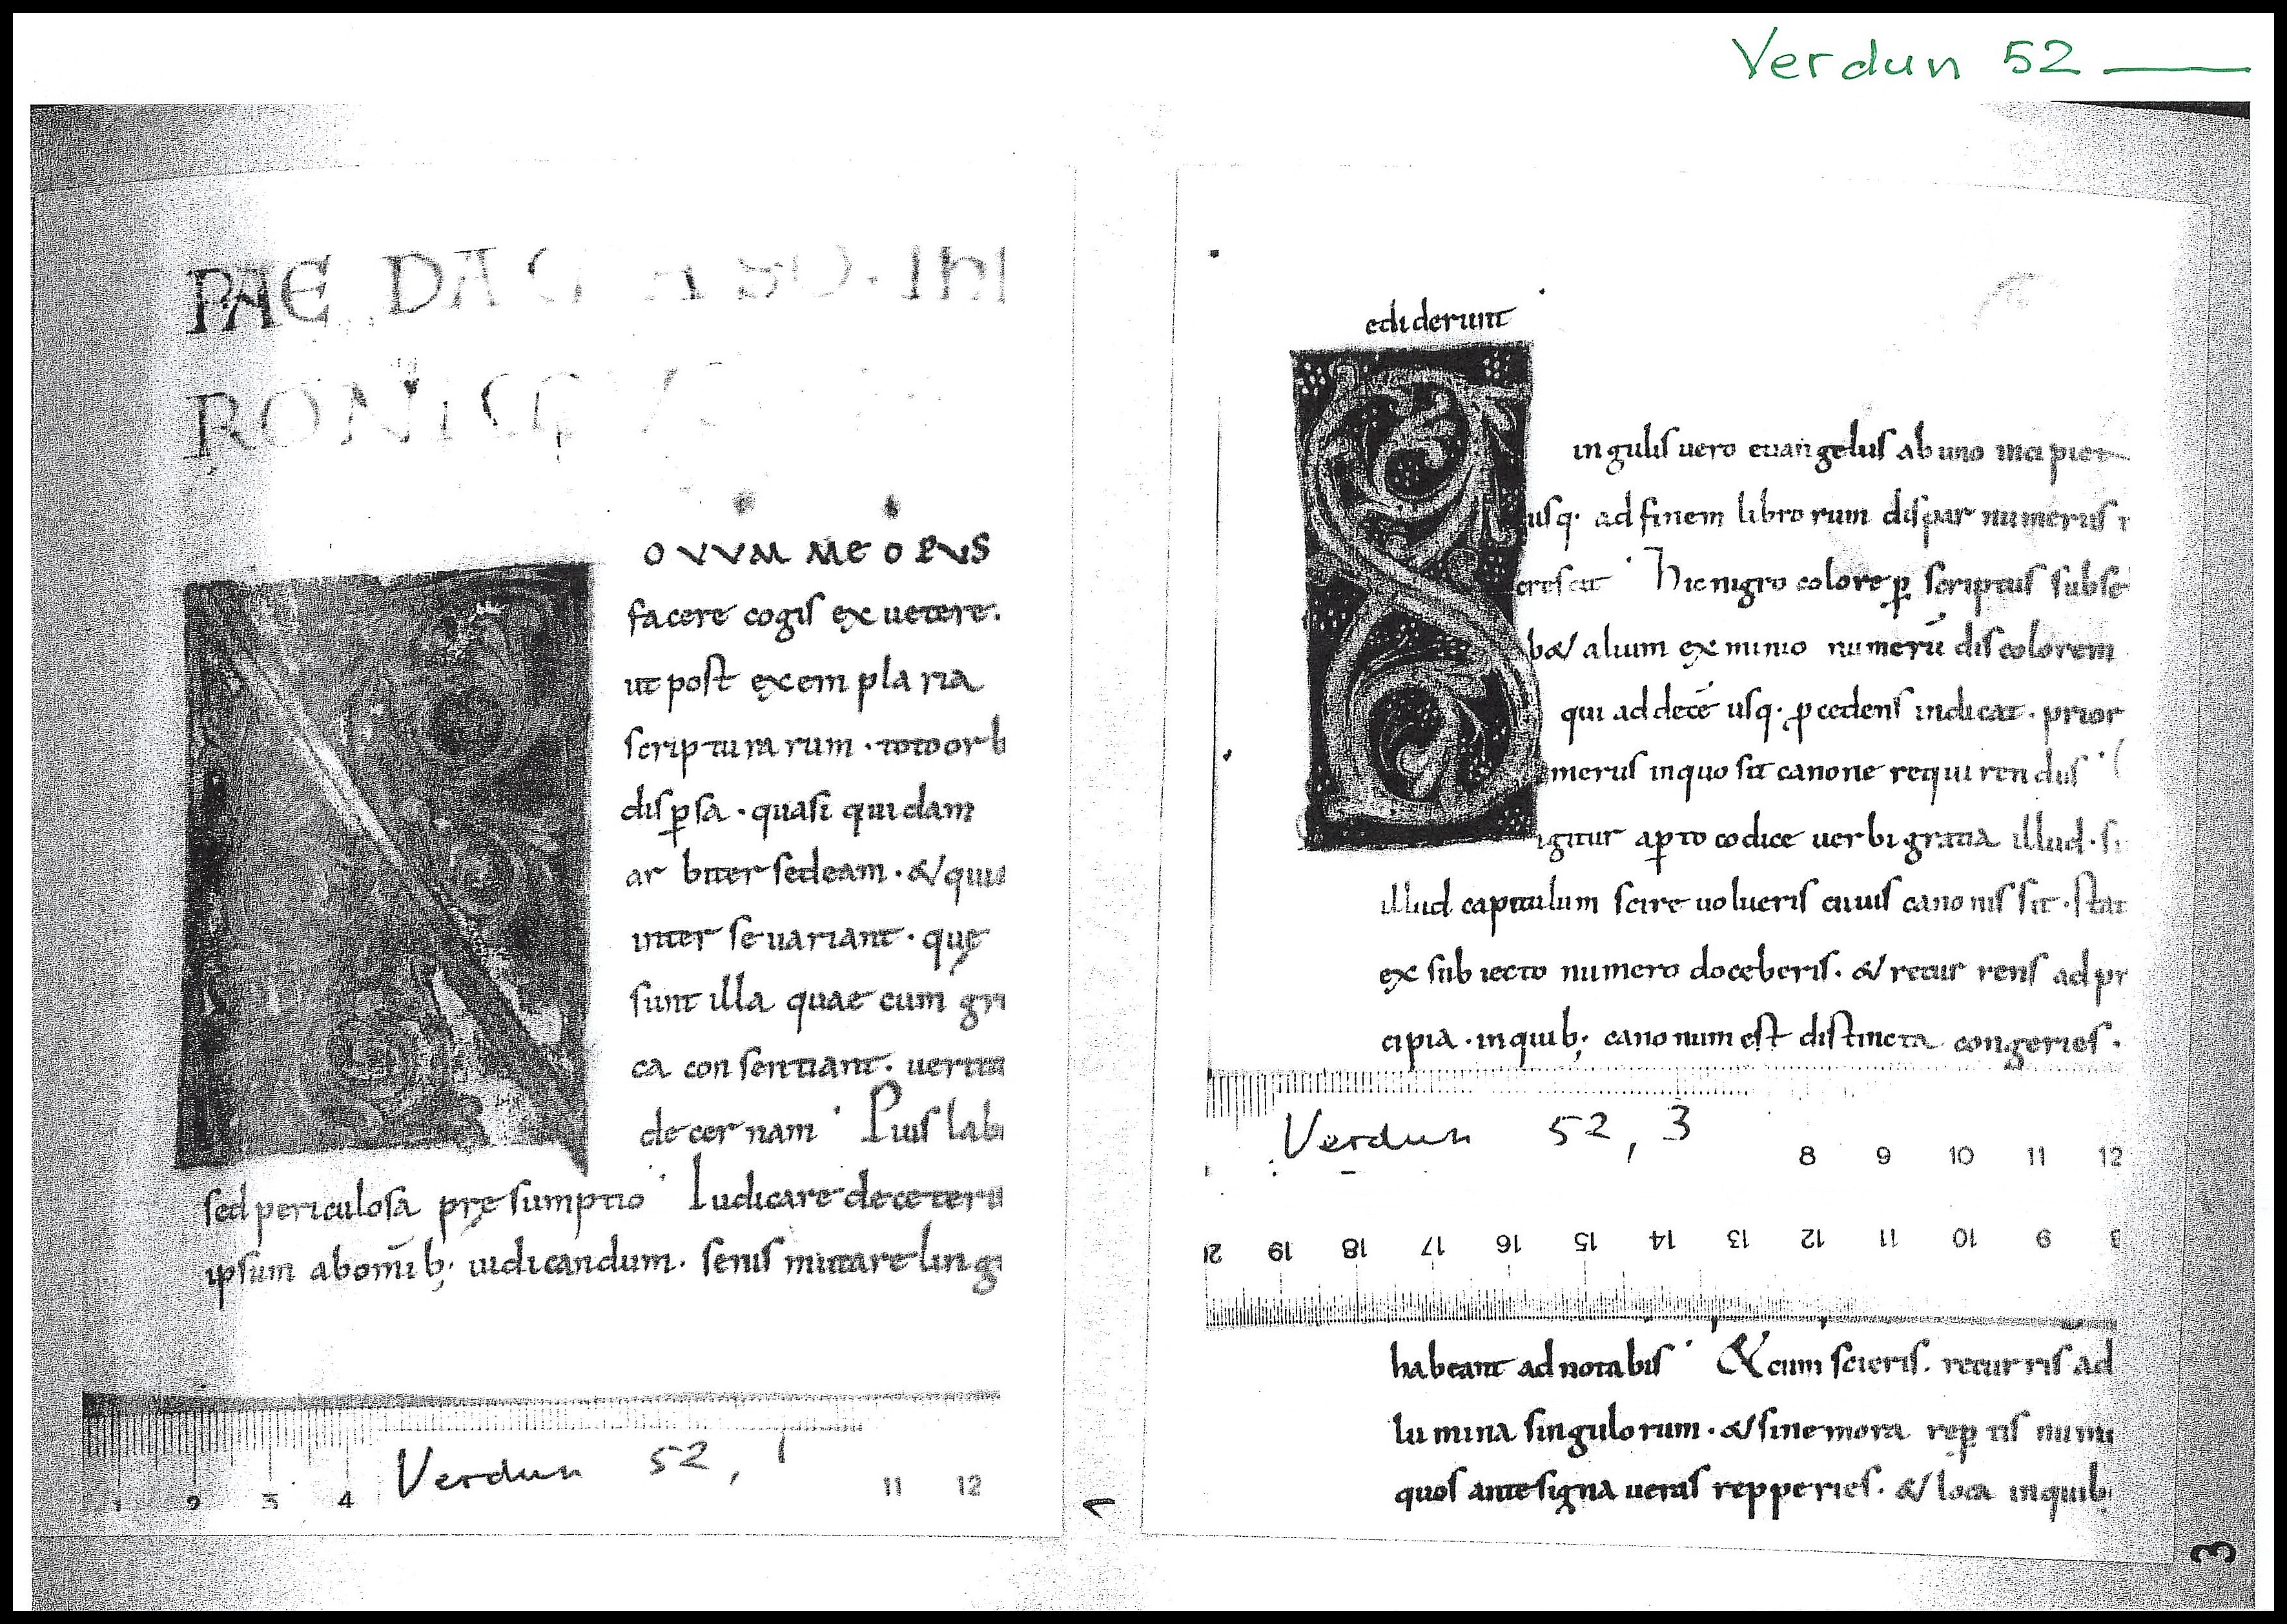 Verdun 52
PAE DA
RONI
OVVM ME OPVS
facere cogis ex uetere.
ut post exemplaria
scripturarum · toto orb
disp̱sa · quasi quidam
arbiter sedeam · & quia
inter se uariant · quę
sunt illa quae cum grę
ca consentiant · uerita
decernam · Pius lab
sed periculosa pręsumptio · Iudicare de ceteris
ipsum ab om̄ib; iudicandum · senis mutare lingu
Verdun 52, 1
1 2 3 4 11 12
1
ediderunt
ingulis uero euangeliis ab uno incipiet
usq· ad finem librorum dispar numerus
crescit · Hic nigro colore p̱scriptus sub se
b& alium ex minio numerū discolorem
qui ad decē usq· ꝓcedens indicat · prior
merus in quo sit canone requirendus ·
igitur ap̱to codice uerbi gratia illud · si
illud capitulum scire uolueris cuius canonis sit · stat
ex subiecto numero doceberis · & recurrens ad pr
cipia · in quib; canonum est distincta congeries ·
Verdun 52, 3
8 9 10 11 12
19 18 17 16 15 14 13 12 11 10 9
habeant adnotabis · & cum scieris · recurris ad
lumina singulorum · & sine mora rep̱tis num
quos ante signa ueras repperies · & loca in quib;
3